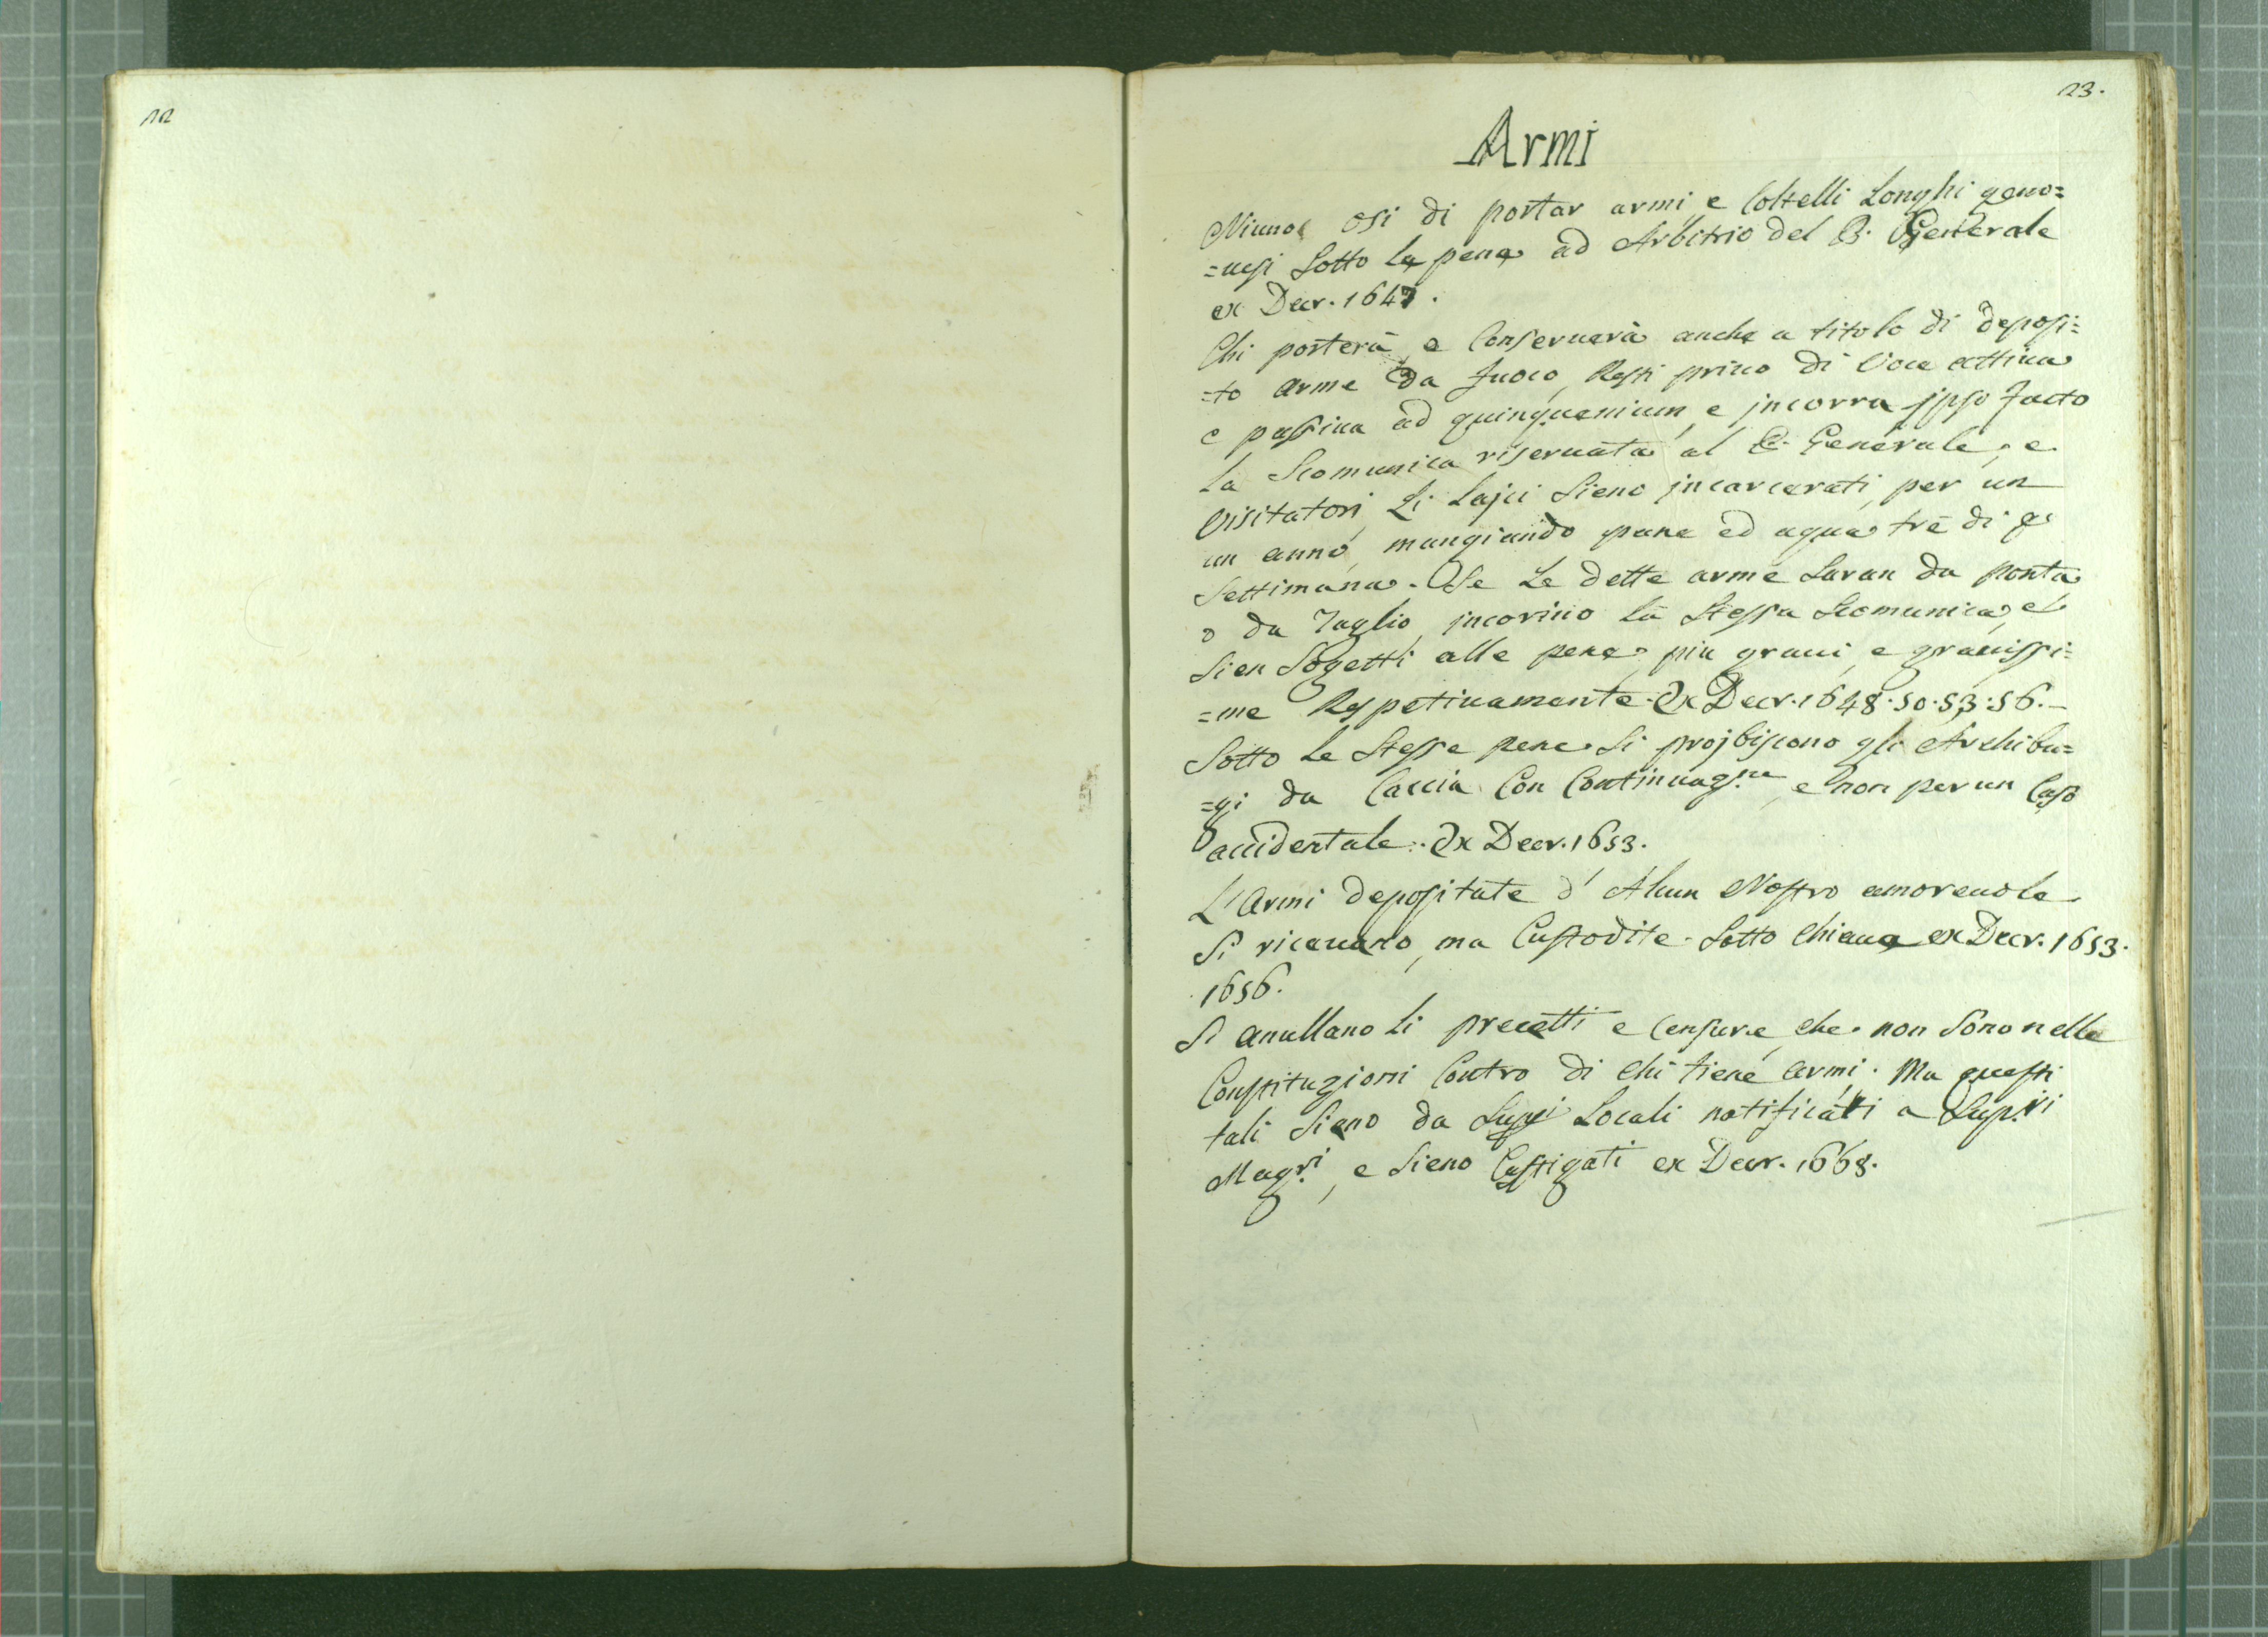 22
23.
Armi
Niuno osi di portar armi, e Coltelli Longhi geno=
=uesi Sotto la pena ad Arbitrio del P. Generale
ex Decr. 1647.
Chi porterà, e Conseruerà anche a titolo di deposi=
=to arme da fuoco, Resti priuo di Voce attiua
e passiua ad quinquenium, e jncorra jpso facto
la Scomunica riseruata al P. Generale, e
Visitatori, Li Lajci Sieno jncarcerati, per un
un anno, mangiando pane ed aqua trè di p
Settimana. Se Le dette arme Saran da ponta
o da Taglio, jncorino la Stessa Scomunica, e
Sien Sogetti alle pene più graui, e grauissi=
=me Respetiuamente. Ex Decr. 1648. 50. 53. 56.
Sotto Le Stesse pene Si projbiscono gli Archibu=
=gi da Caccia Con Continuazne, e non per un Caso
accidentale. Ex Decr. 1653.
L'Armi depositate d' Alcun Nostro amoreuole
Si riceuano, ma Custodite Sotto Chiaue ex Decr. 1653.
1656.
Si anullano Li precetti e Censure, che non Sono nelle
Constituzioni Contro di chi tiene armi. Ma questi
tali Sieno da Supri Locali notificati a Supri
Magri, e Sieno Castigati ex Decr. 1668.